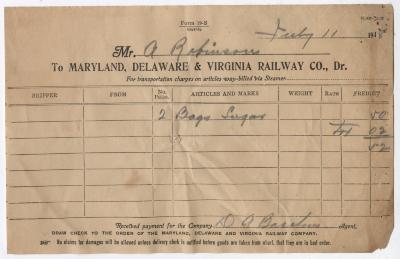 Form 19-S
July 11 191
Mr. A Robinson
To MARYLAND, DELAWARE & VIRGINIA RAILWAY CO., Dr.
For transportation charges on articles way-billed via Steamer
SHIPPER FROM No. Pckgs. ARTICLES AND MARKS WEIGHT RATE FREIGHT
2 Bags Sugar 50
02
52
Received payment for the Company D A Agent,
DRAW CHECK TO THE ORDER OF THE MARYLAND, DELAWARE AND VIRGINIA RAILWAY COMPANY.
No claims for damages will be allowed unless delivery clerk is notified before goods are taken from wharf, that they are in bad order.